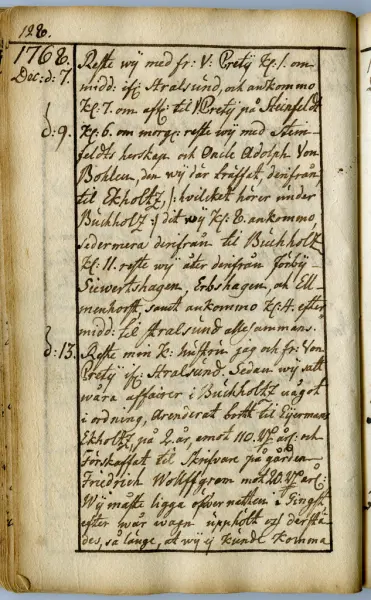 128.
1768.
Dec: d: 7.
Reste wÿ med fr: V: Pretÿ Kl: 1. om
midd: ifr: Stralsund, och ankommo
Kl: 7. om aft: til Pretÿ på Steinfeldt
d: 9.
Kl: 6. om morg: reste wÿ med Stein-
feldts herskap och Oncle Adolph Von
Bohlen, den wÿ där träffat, derifrån
til Ekholtz, /: hvilcket hörer under
Buchholtz :/ dit wÿ Kl: 8. ankommo,
sedermera derifrån til Buchholtz
Kl: 11. reste wÿ åter derifrån förbÿ
Siewertshagen, Erbshagen, och Ell-
menhorst, samt ankommo Kl: 4. efter
midd: til Stralsund allesammans.
d: 13.
Reste min K: hustru jag och fr: Von
Pretÿ ifr: Stralsund. Sedan wÿ satt
wåra affairer i Buchholtz något
i ordning, arenderat bortt til
Ekholtz, på 2. år, emot 110. och
Förskaffat til Skrifvare på gården
Friedrich Wolffgram mot
Wÿ måste ligga öfwer natten i Gingst
efter wår wagn uppholt oss derstä-
des, så länge, at wÿ eÿ kunde komma